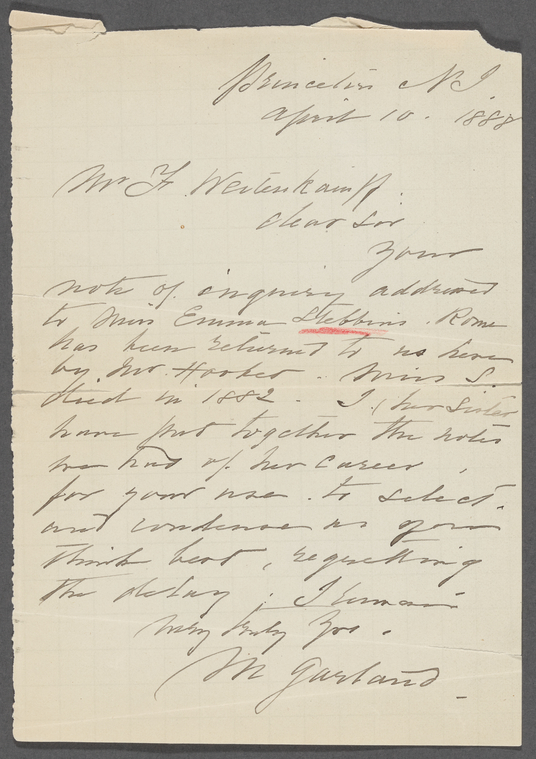 Princeton N J.
April 10. 1888
Mr F. Weitenkampf.
dear Sir
Your
note of inquiry addressed
to Miss Emma Stebbins. Rome
has been returned to us here
by Mr. Hooker - Miss S.
died in 1882 - I, (her sister
have put together the notes
we had of her career,
for your use. to select
and condense as you
think best, regretting
the delay; I remain
very truly Yrs.
M Garland -